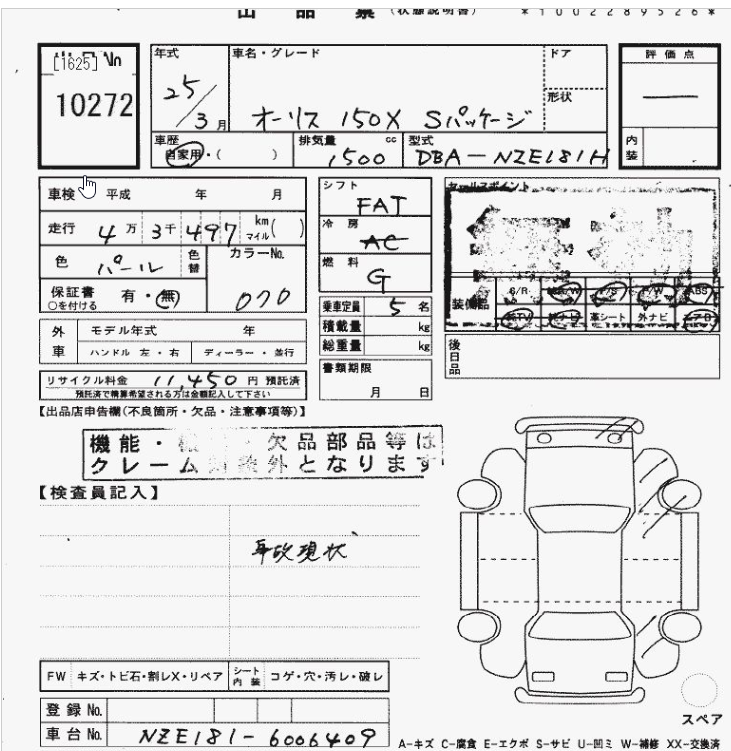 出品票 (状態説明書) *1002289526*
[1625] No
10272
年式
25/3月
車名・グレード
オーリス 150X Sパッケージ
ドア
形状
評価点
—
内装
車歴
自家用・( )
排気量 cc
1500
型式
DBA-NZE181H
車検 平成 年 月
走行 4万 3千 497 km マイル ( )
色 パール 色替
カラーNo.
070
保証書 有・無
○を付ける
外車 モデル年式 年
ハンドル 左・右 ディーラー・並行
リサイクル料金 11,450円 預託済
預託済で精算希望される方は金額記入して下さい
シフト
FAT
冷房
AC
燃料
G
乗車定員 5名
積載量 kg
総重量 kg
書類期限
月 日
セールスポイント
装備品 S/R A/W P/S P/W ABS
純TV 純ナビ 革シート 外ナビ エアB
後日品
【出品店申告欄(不良箇所・欠品・注意事項等)】
機能・ ・欠品部品等は
クレーム対象外となります
【検査員記入】
事故現状
FW キズ・トビ石・割レX・リペア シート内装 コゲ・穴・汚レ・破レ
登録No.
車台No. NZE181-6006409
スペア
A-キズ C-腐食 E-エクボ S-サビ U-凹ミ W-補修 XX-交換済